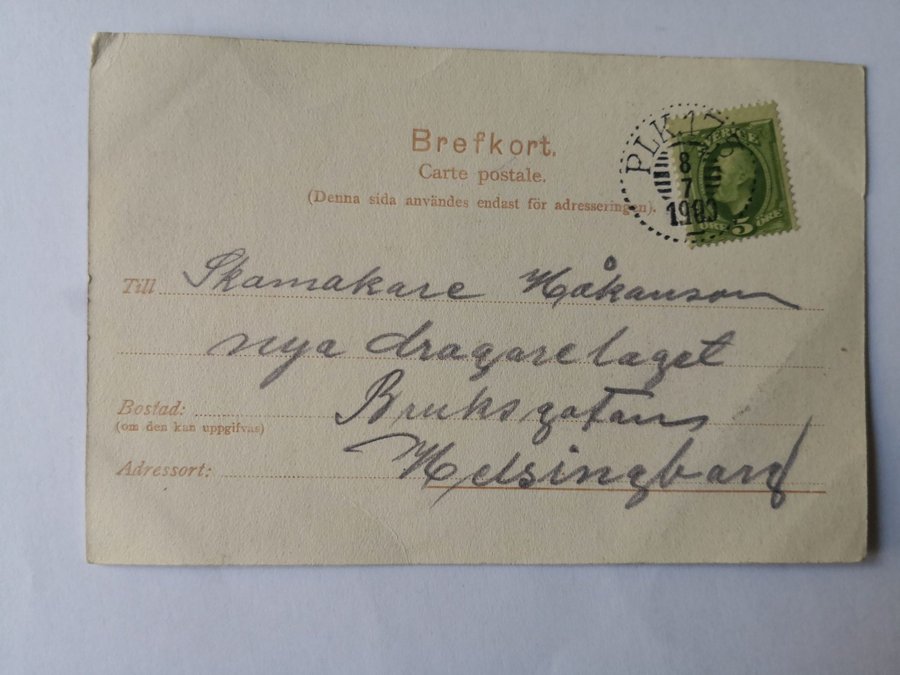 Brefkort.
Carte postale.
(Denna sida användes endast för adresseringen).
PLK.
8
7
1903
SVERIGE
5
ÖRE ÖRE
Till Skamakare Håkanson
nya dragarelaget
Bostad: Bruksgatan
(om den kan uppgifvas)
Adressort: Helsingborg